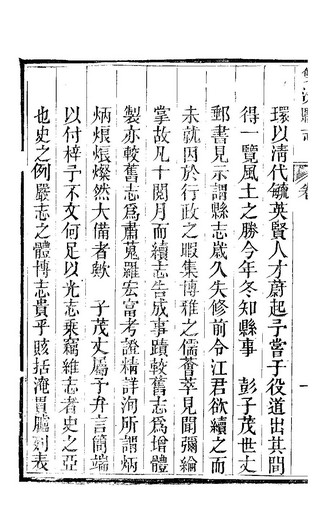 環以清代毓英賢人才蔚起予嘗于役道出其間
得一覽風土之勝今年冬知縣事 彭子茂世丈
郵書見示謂縣志歲久失修前令江君欲續之而
未就因於行政之暇集博雅之儒薈萃見聞彌綸
掌故凡十閱月而續志告成事蹟較舊志爲增體
製亦較舊志爲肅蒐羅宏富考證精詳洵所謂炳
炳烺烺燦然大備者歟 子茂丈屬予弁言簡端
以付梓予不文何足以光志乘竊維志者史之亞
也史之例嚴志之體博志貴乎賅括淹貫臚列表